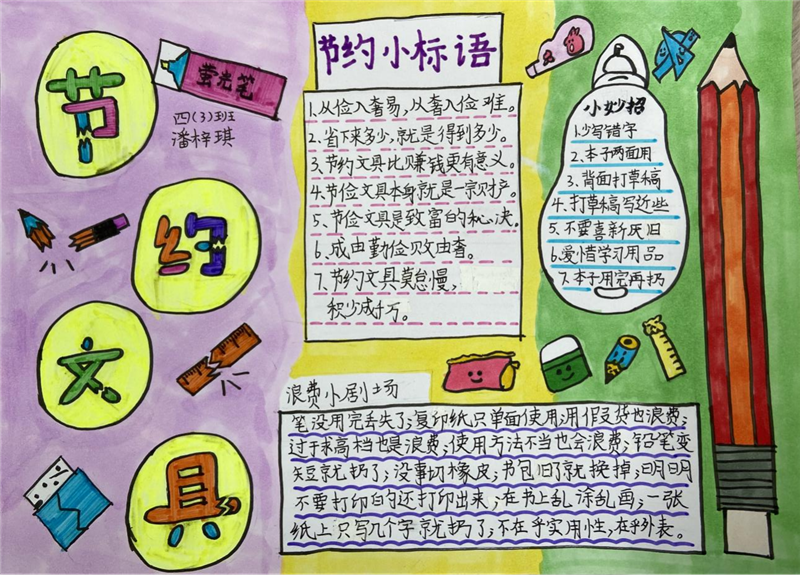 节
约
文
具
萤光笔
四(3)班
潘梓琪
节约小标语
1.从俭入奢易,从奢入俭难。
2.省下来多少,就是得到多少。
3.节约文具比赚钱更有意义。
4.节俭文具本身就是一宗财产。
5.节俭文具是致富的秘决。
6.成由勤俭败由奢。
7.节约文具莫怠慢,
积少成千万。
小妙招
1.少写错字
2.本子两面用
3.背面打草稿
4.打草稿写近些
5.不要喜新厌旧
6.爱惜学习用品
7.本子用完再扔
浪费小剧场
笔没用完丢失了;复印纸只单面使用;用假支货也浪费;
过于求高档也是浪费;使用方法不当也会浪费;铅笔变
短就扔了;没事切橡皮;书包旧了就换掉;明明
不要打印的还打印出来;在书上乱涂乱画;一张
纸上只写几个字就扔了,不在乎实用性,在乎外表。